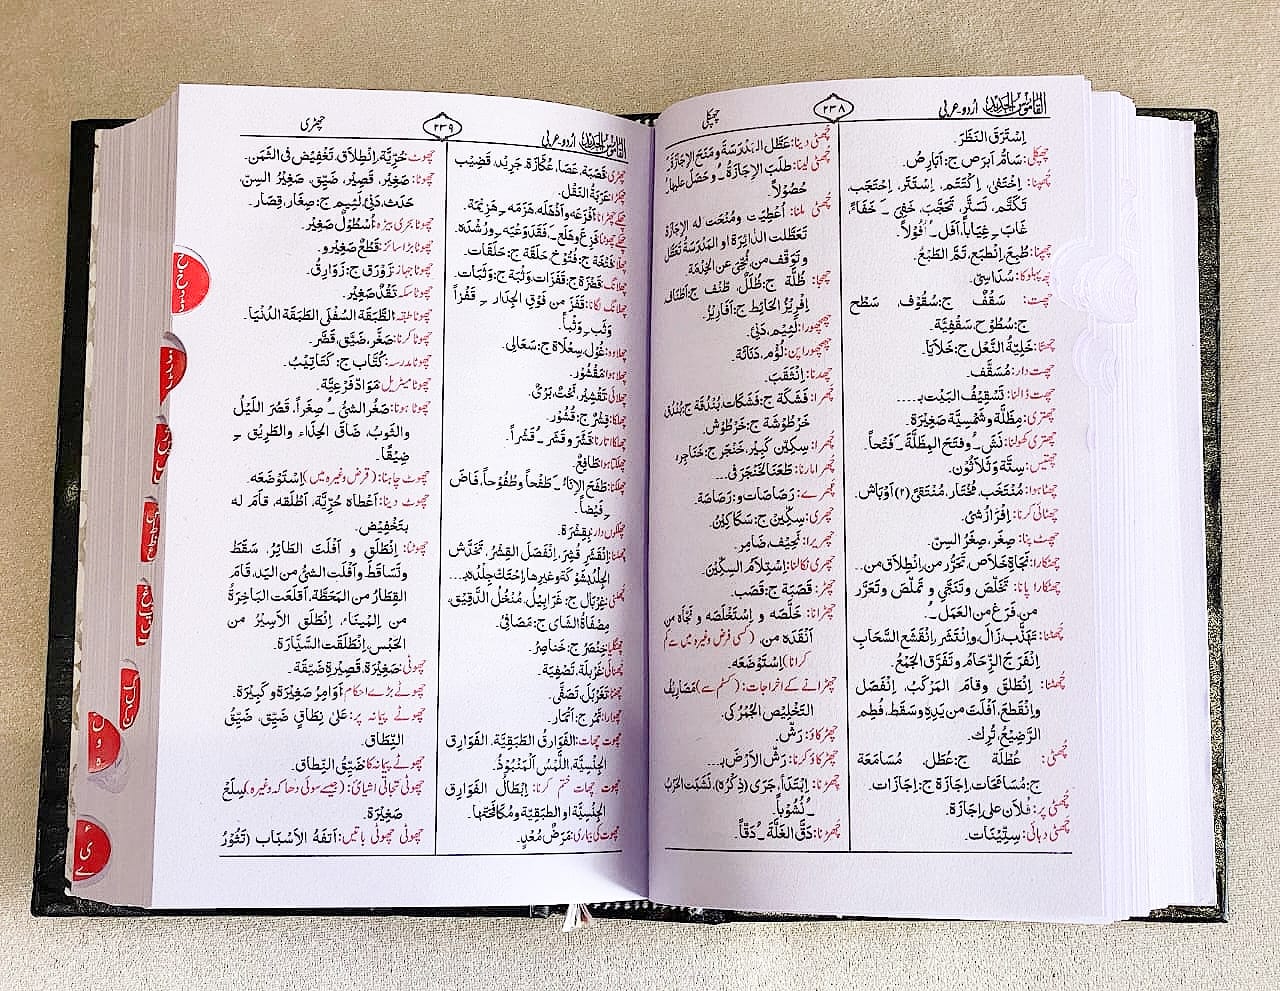 القاموس الجدید اُردو۔عربی
۲۳۸
چھپکلی
اِسْتَرَقَ النَّظَرَ.
چھپکلی: سَامُّ اَبْرَصَ ج: اَبَارِصُ.
چھپنا: اِخْتَفٰی، اِکْتَتَمَ، اِسْتَتَرَ، اِحْتَجَبَ،
تَکَتَّمَ، تَسَتَّرَ، تَحَجَّبَ، خَفِیَ ـَ خَفَاءً،
غَابَ ـِ غِیَاباً، اَفَلَ ـُ اُفُوْلاً.
چھپنا: طُبِعَ، اِنْطَبَعَ، تَمَّ الطَّبْعُ.
چھ پہلوکا: سُدَاسِیٌّ.
چھت: سَقْفٌ ج: سُقُوْفٌ، سَطْحٌ
ج: سُطُوْحٌ، سَقْفِیَّةٌ.
چھتّا: خَلِیَّةُ النَّحْلِ ج: خَلَایَا.
چھت دار: مُسَقَّفٌ.
چھت ڈالنا: تَسْقِیْفُ الْبَیْتِ بـ....
چھتری: مِظَلَّةٌ، وَشَمْسِیَّةٌ صَغِیْرَةٌ.
چھتری کھولنا: نَشَرَ ـُ وفَتَحَ الْمِظَلَّةَ ـَ فَتْحاً.
چھتیس: سِتَّةٌ وَثَلَاثُوْنَ.
چھٹا ہوا: مُنْتَخَبٌ، مُخْتَارٌ، مُنْتَقیً (۲) اَوْبَاشٌ.
چھٹائی کرنا: اِفْرَازُ شَیْءٍ.
چھٹ پنا: صِغَرٌ، صِغَرُ السِّنِّ.
چھٹکارا: نَجَاةٌ، خَلَاصٌ، تَحَرُّرٌ مِن، اِنْطِلَاقٌ مِن...
چھٹکارا پانا: تَخَلَّصَ وَتَنَجَّی وَتَمَلَّصَ وَتَحَرَّرَ
مِن، فَرَغَ مِنَ الْعَمَلِ ـُ.
چھٹنا: تَهَذَّبَ، زَالَ، وَانْتَشَرَ، اِنْقَشَعَ السَّحَابُ
اِنْفَرَجَ الزِّحَامُ وَتَفَرَّقَ الْجَمْعُ.
چھٹنا: اِنْطَلَقَ وقامَ المَرْکَبُ، اِنْفَصَلَ
وانْقَطَعَ، اَفْلَتَ من یَدِهٖ وسَقَطَ، فُطِمَ
الرَّضِیْعُ، تُرِكَ.
چھٹی: عُطْلَةٌ ج: عُطَلٌ، مُسَامَحَةٌ
ج: مُسَامَحَاتٌ، اِجَازَةٌ ج: اِجَازَاتٌ.
چھٹی پر: فُلَانٌ عَلٰی اِجَازَةٍ.
چھٹی دہائی: سِتِّیْنَاتٌ.
چھٹی دینا: عَطَّلَ الْمَدْرَسَةَ وَمَنَحَ الْاِجَازَةَ.
چھٹی لینا: طَلَبَ الْاِجَازَةَ ـُ وحَصَلَ علیها
حُصُوْلاً.
چھٹی ملنا: اُعْطِیَتْ ومُنْحَتْ له الاِجَازَةُ
تَعَطَّلَت الدَّائِرَةُ اَو المَدْرَسَةُ تَعَطَّلَ
وتَوَقَّفَ من، نُحِّیَ عن الخِدْمَةِ
چھجا: ظُلَّةٌ ج: ظُلَلٌ، طَنَفٌ ج: اَطْنَافٌ
اِفْرِیْزُ الْحَائِطِ ج: اَفَارِیْزُ.
چھچھورا: لَئِیْمٌ، دَنِیٌّ.
چھچھورا پن: لُؤْمٌ، دَنَائَةٌ.
چھدنا: اِنْثَقَبَ.
چھرا: فَشَكَةٌ ج: فَشَكَاتٌ، بُنْدُقَةٌ ج: بُنْدُقٌ
خَرْطُوْشَةٌ ج: خَرْطُوْشٌ.
چھرا: سِكِّیْنٌ كَبِیْرٌ، خَنْجَرٌ ج: خَنَاجِرُ.
چھرا مارنا: طَعَنَ الخَنْجَرَ فی...
چھرے: رَصَاصَاتٌ و: رَصَاصَةٌ.
چھری: سِكِّیْنٌ ج: سَكَاكِیْنُ.
چھریرا: نَحِیْفٌ، ضَامِرٌ.
چھری نکالنا: اِسْتِلَامُ السِّكِّیْنِ.
چھڑ: قَصَبَةٌ ج: قَصَبٌ.
چھڑانا: خَلَّصَهٗ وَ اِسْتَخْلَصَهٗ وَ نَجَّاهُ مِن
اَنْقَذَهٗ مِن. (کسی قرض وغیرہ میں سے کم
کرانا) اِسْتَوْضَعَهٗ.
چھڑانے کے اخراجات: (کسٹم سے) مَصَارِیْفُ
التَّخْلِیْصِ الْجُمْرُكِی.
چھڑکاؤ: رَشٌّ.
چھڑکاؤ کرنا: رَشَّ الْاَرْضَ بـ...
چھڑنا: اِبْتَدَأَ، جَرَی (ذِكْرُهٗ)، نَشَبَت الحَرْبُ
ـَ نُشُوْباً.
چھڑنا: دَقَّ الغَلَّةَ ـُ دَقّاً.
القاموس الجدید اُردو۔عربی
۲۳۹
چھڑی
چھڑی: قَصَبَةٌ، عَصَا، عُكَّازَةٌ، جَرِیْدٌ، قَضِیْبٌ
چھکڑا: عَرَبَةُ النَّقْلِ.
چھکے چھڑانا: اَفْزَعَهٗ وَاَذْهَلَهٗ، هَزَمَهٗ ـِ هَزِیْمَةً.
چھکے چھوٹنا: فَزِعَ وهَلِعَ ـَ فَقَدَ وَعْیَهٗ ـِ وَرُشْدَهٗ.
چھلّا: فَتْخَةٌ ج: فُتُوْخٌ، حَلَقَةٌ ج: حَلَقَاتٌ.
چھلانگ: قَفْزَةٌ ج: قَفَزَاتٌ، وَثْبَةٌ ج: وَثَبَاتٌ.
چھلانگ لگانا: قَفَزَ مِن فَوْقِ الْجِدَارِ ـِ قَفْزاً
وَثَبَ ـِ وَثْباً.
چھلاوہ: غُوْلٌ، سِعْلَاةٌ ج: سَعَالٰی.
چھلا ہوا: مَقْشُوْرٌ.
چھلائی: تَقْشِیْرٌ، نَحْتٌ، بَرْیٌ.
چھلکا: قِشْرٌ ج: قُشُوْرٌ.
چھلکا اتارنا: قَشَّرَ وقَشَرَ ـُ قَشْراً.
چھلکتا ہوا: طَافِحٌ.
چھلکنا: طَفَحَ الْاِنَاءُ ـَ طَفْحاً وطُفُوْحاً، فَاضَ
ـِ فَیْضاً.
چھلکوں دار: بِقِشْرَةٍ.
چھلنا: اِنْقَشَرَ، قُشِرَ، اِنْفَصَلَ القِشْرُ، تَخَدَّشَ
الجِلْدُ بِشَوْكَةٍ وغیرها، اِحْتَكَّ جِلْدُہٗ بـ...
چھلنی: غِرْبَالٌ ج: غَرَابِیْلُ، مُنْخُلُ الدَّقِیْقِ،
مِصْفَاةُ الشَّای ج: مَصَافِی.
چھنگلیا: خِنْصَرٌ ج: خَنَاصِرُ.
چھنائی: غَرْبَلَةٌ، تَصْفِیَةٌ.
چھننا: تَغَرْبَلَ، تَصَفَّی.
چھوارا: تَمْرٌ ج: اَتْمَارٌ.
چھوت چھات: الفَوَارِقُ الطَّبَقِیَّةُ، الفَوَارِقُ
الْجِنْسِیَّةُ، اللَّمْسُ الْمَنْبُوْذُ.
چھوت چھات ختم کرنا: اِبْطَالُ الفَوَارِقِ
الْجِنْسِیَّةِ او الطَبَقِیَّةِ ومُكَافَحَتُها.
چھوت کی بیماری: مَرَضٌ مُعْدٍ.
چھوٹ: حُرِّیَّةٌ، اِنْطِلَاقٌ، تَخْفِیْضٌ فی الثَّمَنِ.
چھوٹا: صَغِیْرٌ، قَصِیْرٌ، ضَیِّقٌ، صَغِیْرُ السِنِّ،
حَدَثٌ، دَنِیٌّ، لَئِیْمٌ ج: صِغَارٌ، قِصَارٌ.
چھوٹا بحری بیڑہ: اُسْطُوْلٌ صَغِیْرٌ.
چھوٹا بڑا سائز: قَطْعٌ صَغِیْرٌ و.
چھوٹا جہاز: زَوْرَقٌ ج: زَوَارِقُ.
چھوٹا سکہ: نَقْدٌ صَغِیْرٌ.
چھوٹا طبقہ: الطَّبَقَةُ السُفْلٰی، الطَّبَقَةُ الدُّنْیَا.
چھوٹا کرنا: صَغَّرَ، ضَیَّقَ، قَصَّرَ.
چھوٹا مدرسہ: كُتَّابٌ ج: كَتَاتِیْبُ.
چھوٹا میٹریل: مَوَادٌّ فَرْعِیَّةٌ.
چھوٹا ہونا: صَغُرَ الشئُ ـُ صِغَراً، قَصُرَ اللَّیْلُ
والثَّوبُ، ضَاقَ الحِذَاءُ والطَرِیْقُ ـِ
ضِیْقًا.
چھوٹ چاہنا: (قرض وغیرہ میں) اِسْتَوْضَعَهٗ
چھوٹ دینا: اَعْطَاهُ حُرِّیَّةً، اَطْلَقَهٗ، قَامَ لهٗ
بِتَخْفِیْضٍ.
چھوٹنا: اِنْطَلَقَ وَ اَفْلَتَ الطَائِرُ، سَقَطَ
وتَسَاقَطَ واَفْلَتَ الشئُ من الیَدِ، قَامَ
القِطَارُ مِن المَحَطَّةِ، اَقْلَعَت البَاخِرَةُ
من المِیْنَاءِ، اِنْطَلَقَ الْاَسِیْرُ من
الحَبْسِ، اِنْطَلَقَتِ السَّیَّارَةُ.
چھوٹی: صَغِیْرَةٌ، قَصِیْرَةٌ، ضَیِّقَةٌ.
چھوٹے بڑے احکام: اَوَامِرُ صَغِیْرَةٌ وَ كَبِیْرَةٌ.
چھوٹے پیمانہ پر: عَلٰی نِطَاقٍ ضَیِّقٍ، ضَیِّقُ
النِّطَاقِ.
چھوٹے پیمانہ کا: ضَیِّقُ النِّطَاقِ.
چھوٹی تجارتی اشیائ: (جیسے سوئی دھاگہ وغیرہ) سِلَعٌ
صَغِیْرَةٌ.
چھوٹی چھوٹی باتیں: اَتْفَهُ الْاَسْبَابِ (تَثُوْرُ